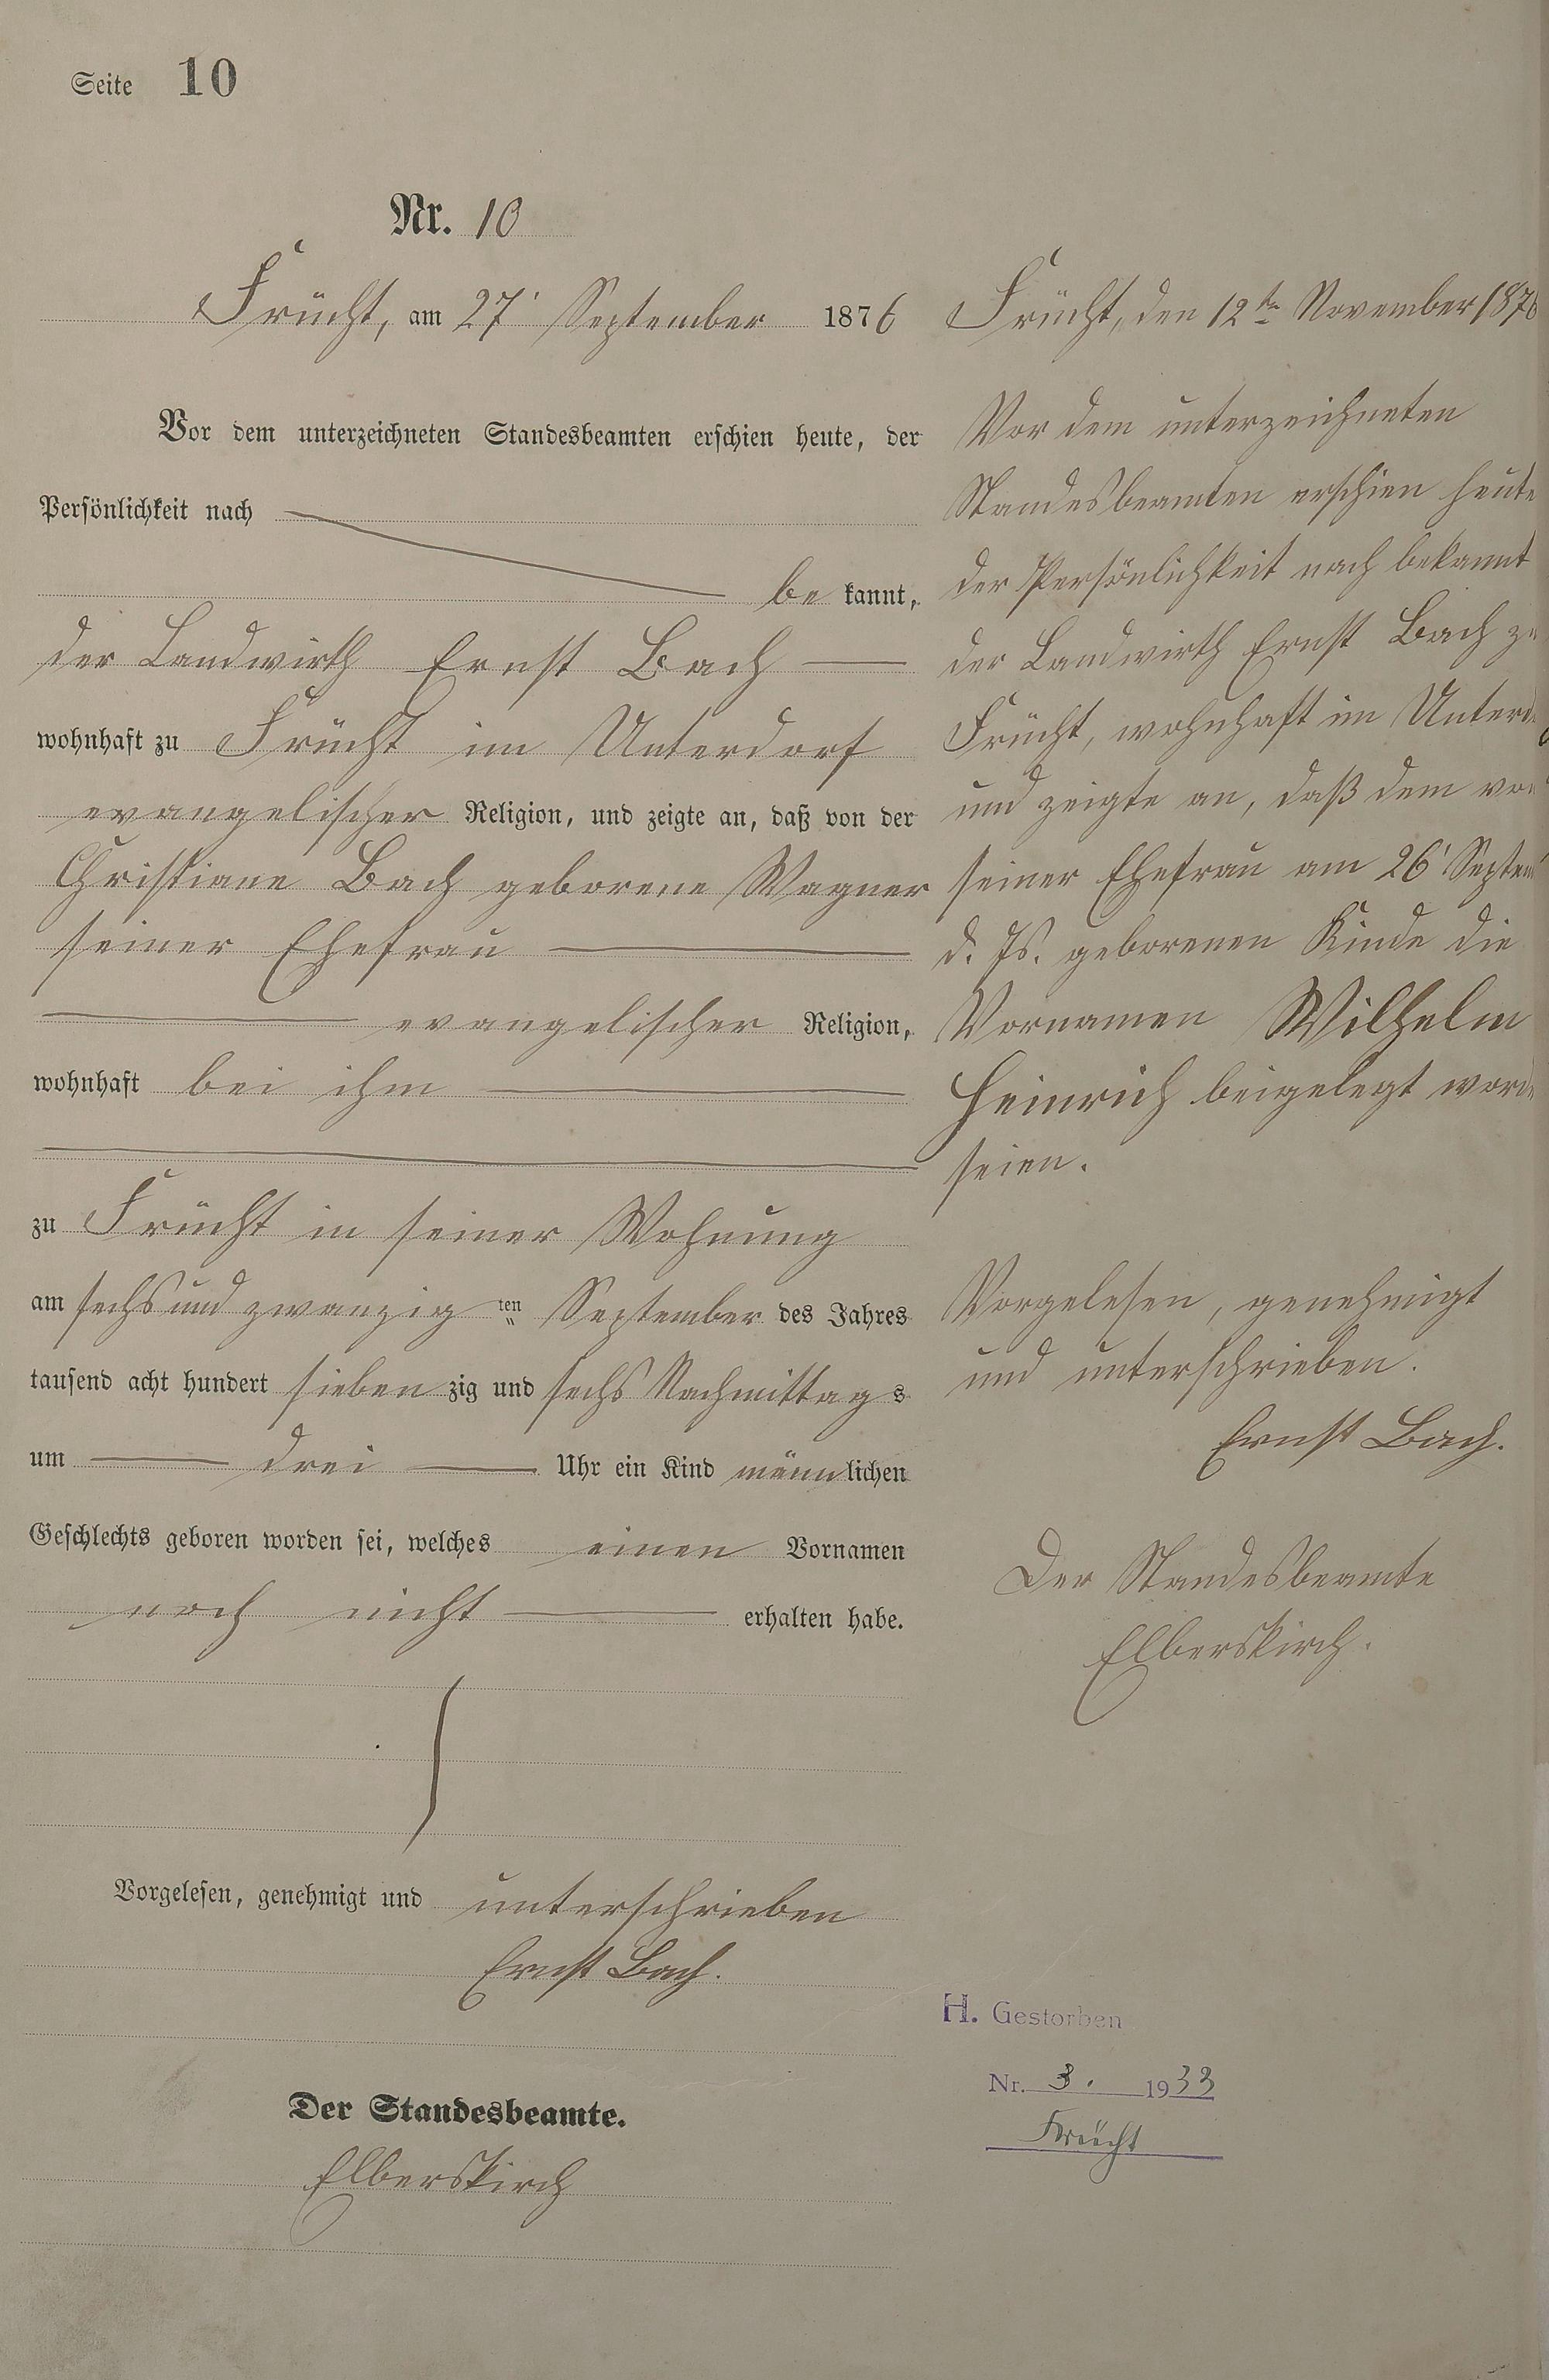 Seite 10
Nr. 10
Frücht, am 27' September 1876
Vor dem unterzeichneten Standesbeamten erschien heute, der
Persönlichkeit nach
be kannt,
der Landwirth Ernst Bach
wohnhaft zu Frücht im Unterdorf
evangelischer Religion, und zeigte an, daß von der
Christiane Bach geborene Wagner
seiner Ehefrau
evangelischer Religion,
wohnhaft bei ihm
zu Frücht in seiner Wohnung
am sechs und zwanzig ten September des Jahres
tausend acht hundert sieben zig und sechs Nachmittags
um drei Uhr ein Kind männlichen
Geschlechts geboren worden sei, welches einen Vornamen
noch nicht erhalten habe.
Vorgelesen, genehmigt und unterschrieben
Ernst Bach.
Der Standesbeamte.
Elberskirch
Frücht, den 12ten November 1876
Vor dem unterzeichneten
Standesbeamten erschien heute
der Persönlichkeit nach bekannt
der Landwirth Ernst Bach zu
Frücht, wohnhaft im Unterd
und zeigte an, daß dem von
seiner Ehefrau am 26' Septem
d. Js. geborenen Kinde die
Vornamen Wilhelm
Heinrich beigelegt word
seien.
Vorgelesen, genehmigt
und unterschrieben.
Ernst Bach.
Der Standesbeamte
Elberskirch.
H. Gestorben
Nr. 3. 1933
Frücht